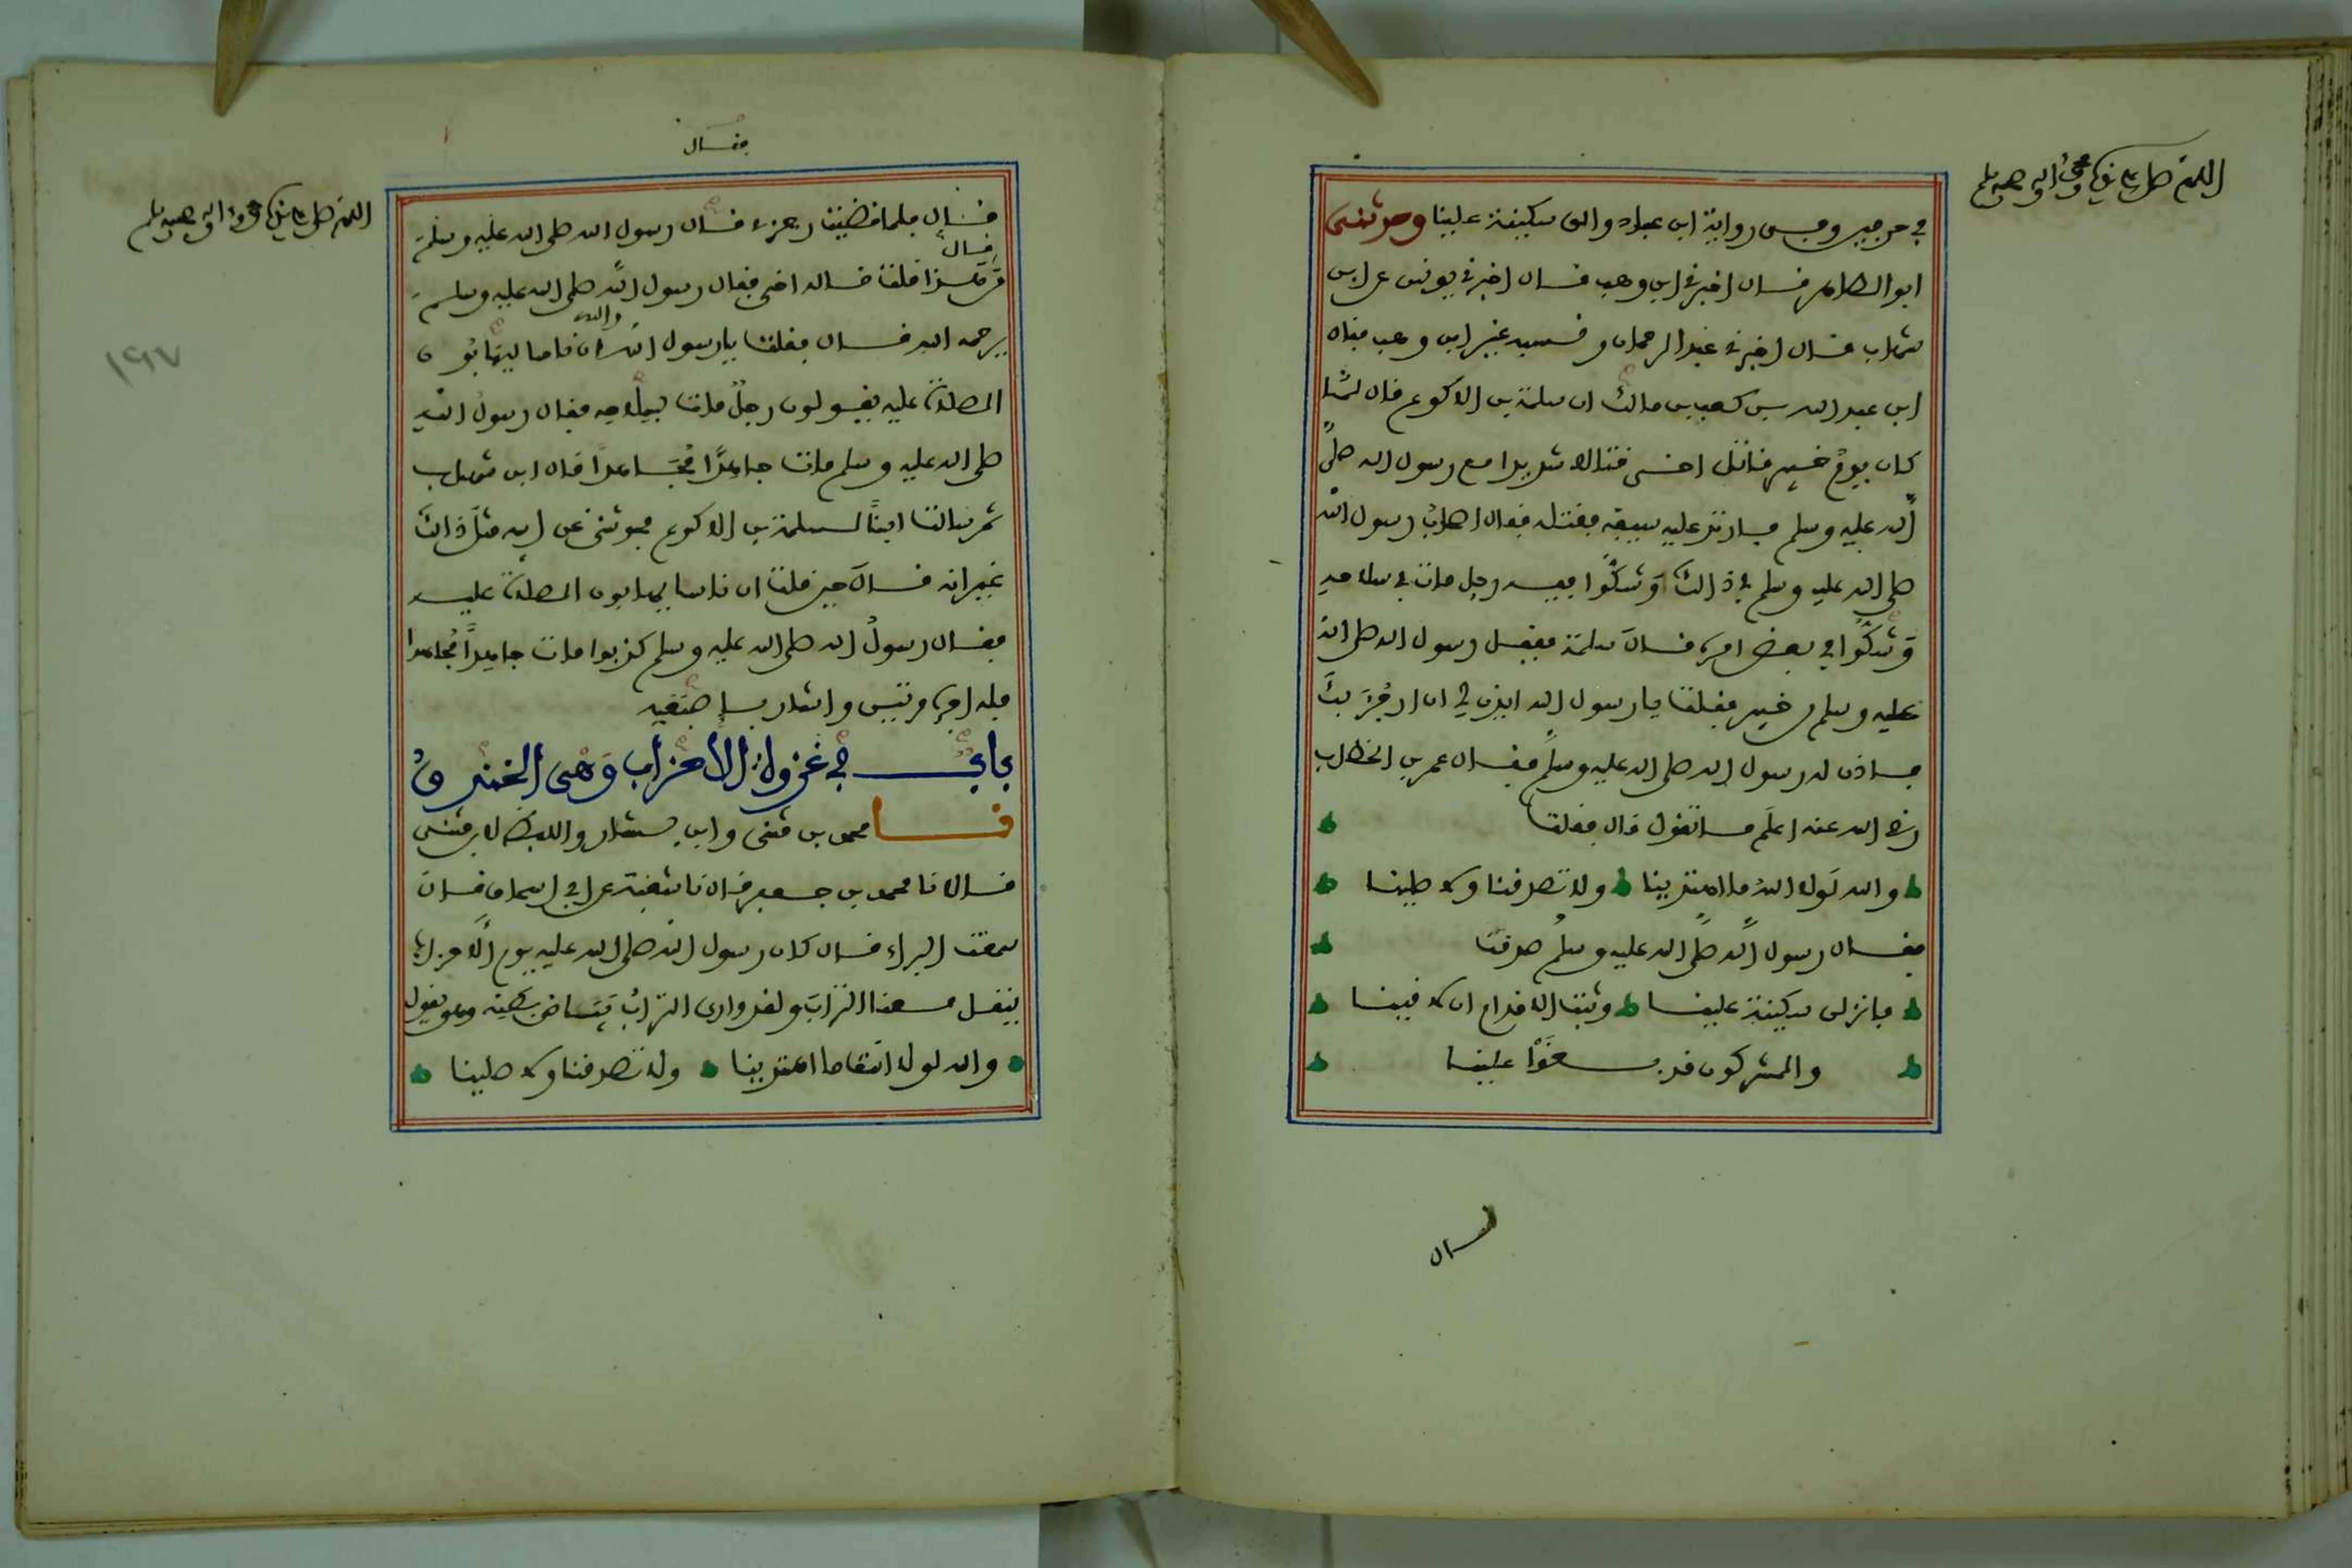 اللهم صل على سيدنا محمد وآله وصحبه وسلم
في حرفين وفي رواية ابن عباد والق سكينة علينا وحدثنى
ابو الطاهر قال اخبرني ابن وهب قال اخبرني يونس عن ابن
شهاب قال اخبرني عبد الرحمان ونسبه غير ابن وهب فقال
ابن عبد الله بن كعب بن مالك ان سلمة بن الاكوع قال لما
كان يوم خيبر قاتل اخى قتالا شديدا مع رسول الله صلى
الله عليه وسلم فارتد عليه سيفه فقتله فقال اصحاب رسول الله
صلى الله عليه وسلم في ذالك وشكوا فيه رجل مات في سلاحه
وشكوا في بعض امره قال سلمة فقفل رسول الله صلى الله
عليه وسلم من خيبر فقلت يا رسول الله ايذن لي ان ارجز بك
فاذن له رسول الله صلى الله عليه وسلم فقال عمر بن الخطاب
رضي الله عنه اعلم ما تقول قال فقلت
والله لولا الله ما اهتدينا ولا تصدقنا ولا صلينا
فقال رسول الله صلى الله عليه وسلم صدقت
فانزلن سكينة علينا وثبت الاقدام ان لاقينا
والمشركون قد بغوا علينا
قال
فقال
اللهم صل على سيدنا محمد وآله وصحبه وسلم
قال فلما قضيت رجزي قال رسول الله صلى الله عليه وسلم
قال
من قال هذا قلت قاله اخي فقال رسول الله صلى الله عليه وسلم
يرحمه الله قال فقلت يا رسول الله ان ناسا ليهابون
والله
الصلاة عليه يقولون رجل مات بسلاحه فقال رسول الله
صلى الله عليه وسلم مات جاهدا مجاهدا قال ابن شهاب
ثم سالت ابنا لسلمة بن الاكوع فحدثني عن ابيه مثل ذالك
غير انه قال حين قلت ان ناسا يهابون الصلاة عليه
فقال رسول الله صلى الله عليه وسلم كذبوا مات جاهدا مجاهدا
فله اجره مرتين واشار باصبعيه
باب في غزوة الأحزاب وهى الخندق
نا محمد بن مثنى وابن بشار واللفظ لابن مثنى
قالا نا محمد بن جعفر قال نا شعبة عن ابي اسحاق قال
سمعت البراء قال كان رسول الله صلى الله عليه يوم الاحزاب
ينقل معنا التراب ولقد وارى التراب بياض بطنه وهو يقول
والله لولا انت ما اهتدينا ولا تصدقنا ولا صلينا
١٩٧